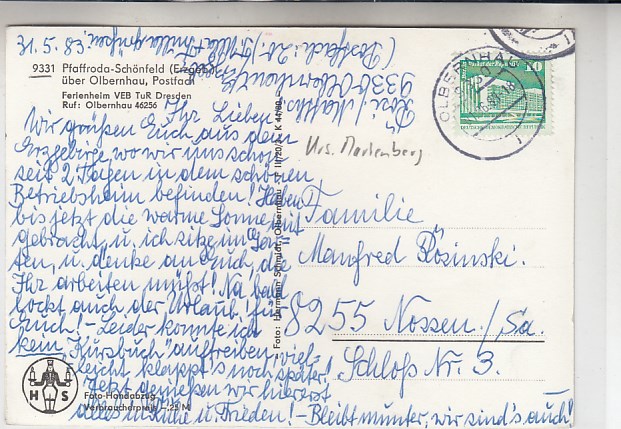 31.5.83
9331 Pfaffroda-Schönfeld (Erzgeb.)
über Olbernhau, Postfach
Ferienheim VEB TuR Dresden
Ruf: Olbernhau 46256
Ihr Lieben
Wir grüßen Euch aus dem
Erzgebirge, wo wir uns schon
seit 2 Tagen in dem schönen
Betriebsheim befinden! Haben
bis jetzt die warme Sonne mit
gebracht u. ich sitze im Gar
ten, u. denke an Euch, die
Ihr arbeiten müßt! Na' bald
lockt auch der Urlaub! für
Euch! – Leider konnte ich
kein „Kursbuch" auftreiben viel-
leicht klappt's noch später!
Jetzt genießen wir hier erst
alles in Ruhe u. Frieden! – Bleibt munter, wir sind's auch!
9330 Olbernhau
Krs. Marienberg
OLBERNHAU
10
Familie
Manfred Rosinski.
8255 Nossen/Sa.
Schloß Nr. 3.
Foto: Hermann Schmidt, Olbernhau
H S
Foto-Handabzug
Verbraucherpreis –,25 M